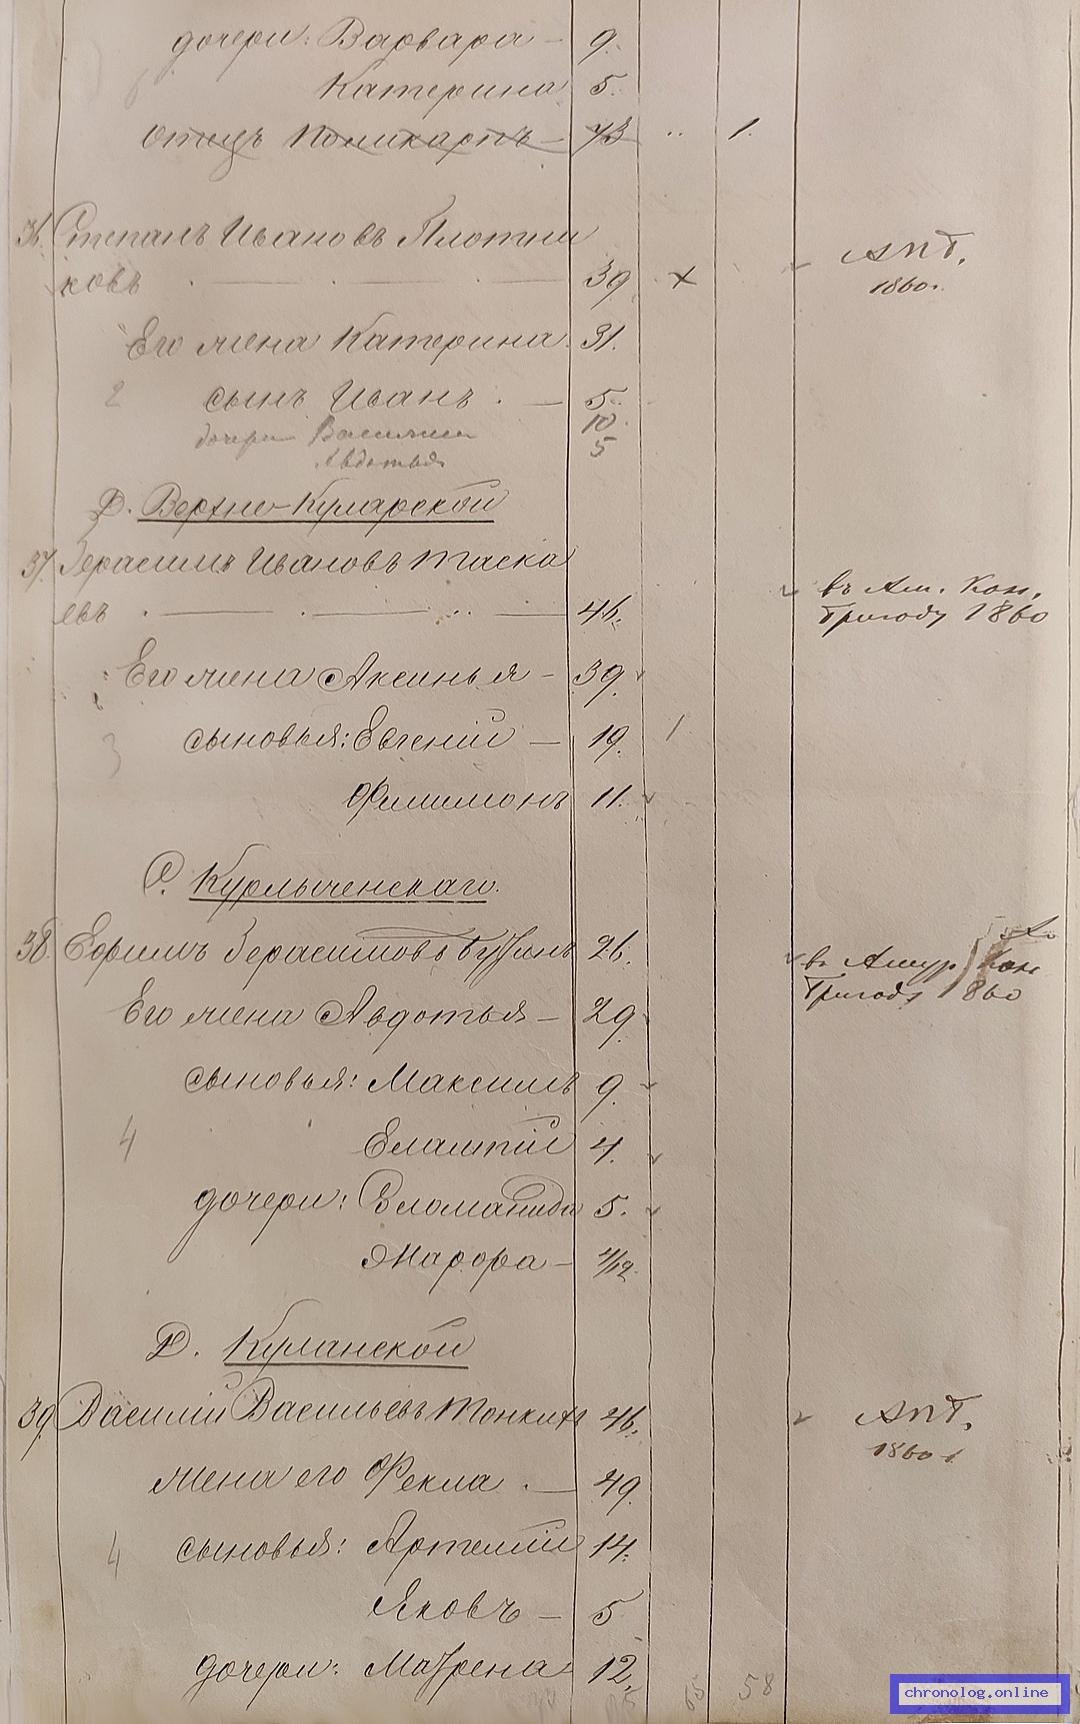 дочери: Варвара — 9.
Катерина 5.
Отецъ Поликарпъ — 73 1.
36. Степанъ Ивановъ Плотни
ковъ — 39 х АПБ.
1860.
Его жена Катерина 31.
2 сынъ Иванъ — 5.
дочери Василиса 10.
Авдотья 5
Д. Верхно-Куларской
37. Герасимъ Ивановъ Таска
евъ — 46. въ Ам. Кон.
бригаду 1860
Его жена Аксинья — 39.
3 сыновья: Евгеній — 19. 1
Филимонъ 11.
С. Курлыченскаго.
38. Ефимъ Герасимовъ 26. въ Амур. Кон
бригаду 1860
Его жена Авдотья — 29.
сыновья: Максимъ 9.
4 4.
дочери: 5.
/12.
Д. Куланской
39. Василій Васильевъ Тонкихъ 46. АПБ.
1860
жена его Фекла — 49.
4 сыновья: Артемій 14.
Яковъ — 5
дочери: Матрена 12.
65 58
chronolog.online